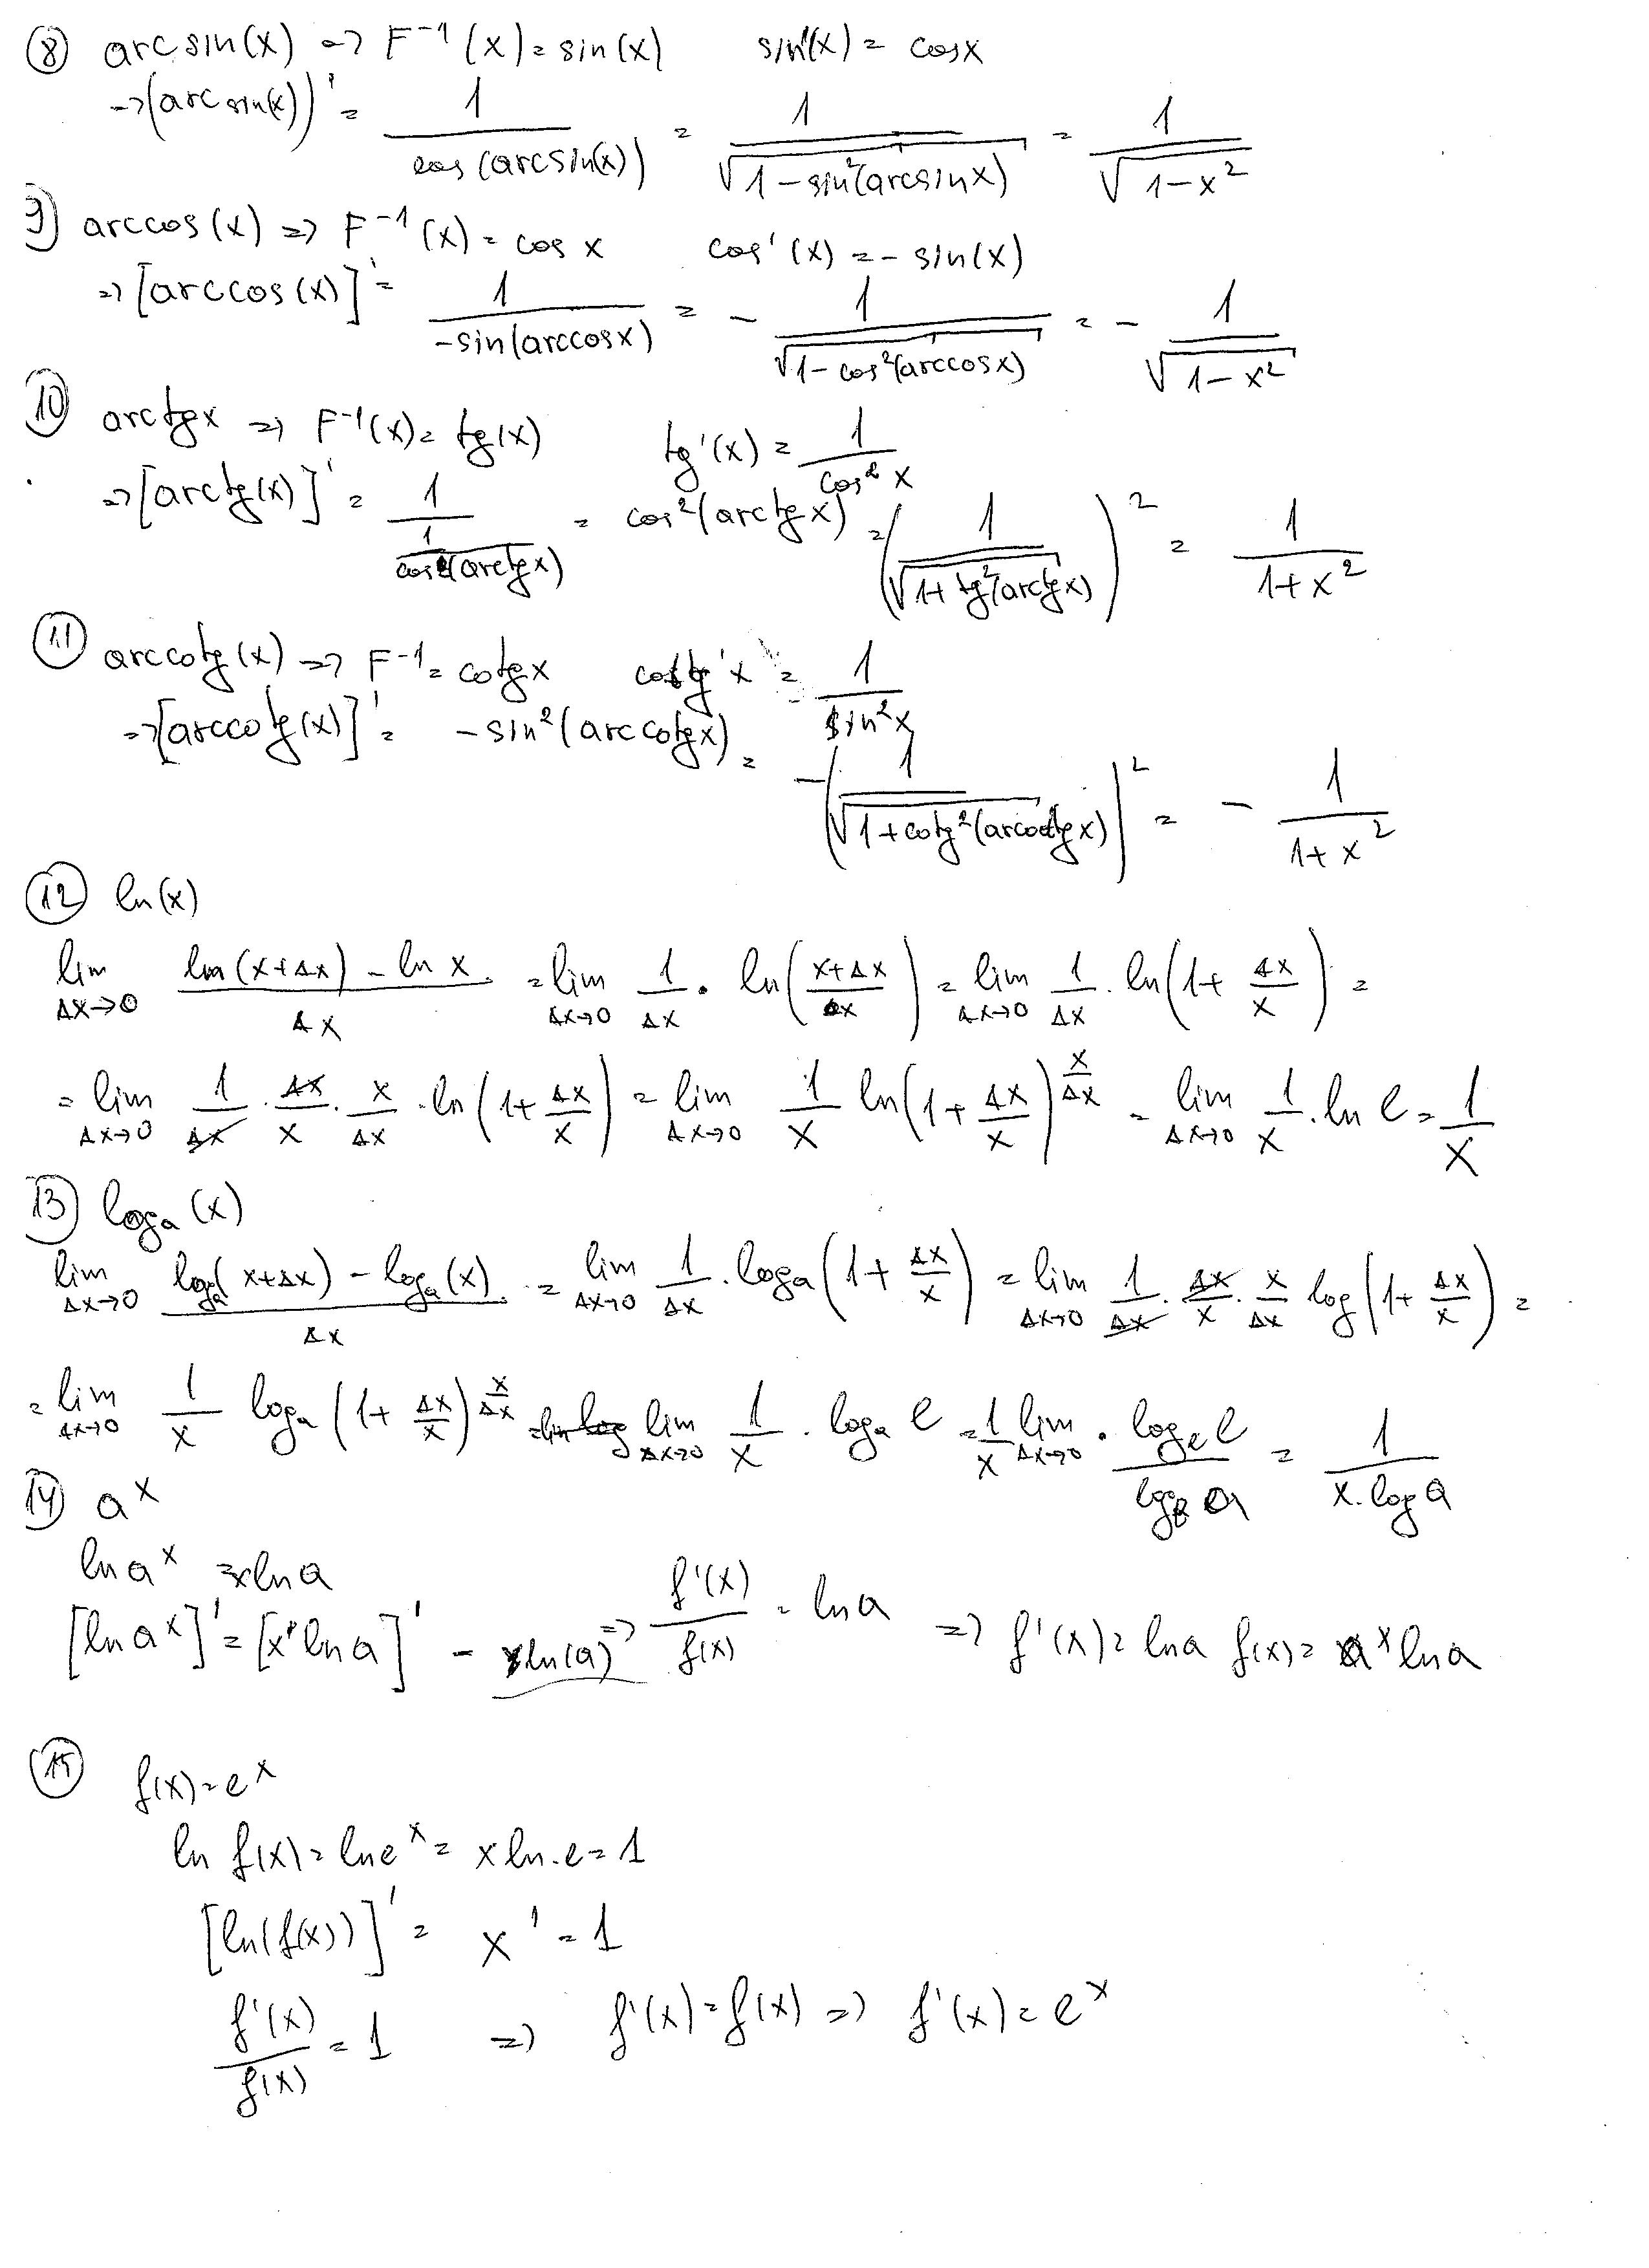 ⑧ arcsin(x) => F⁻¹(x) = sin(x) sin'(x) = cosx
=> (arcsin(x))' = 1/cos(arcsin(x)) = 1/√(1-sin²(arcsinx)) = 1/√(1-x²)
9) arccos(x) => F⁻¹(x) = cos x cos'(x) = - sin(x)
=> [arccos(x)]' = 1/-sin(arccosx) = - 1/√(1-cos²(arccosx)) = - 1/√(1-x²)
10) arctgx => F⁻¹(x) = tg(x) tg'(x) = 1/cos²x
=> [arctg(x)]' = 1/(1/cos²(arctgx)) = cos²(arctgx) = (1/√(1+tg²(arctgx)))² = 1/(1+x²)
⑪ arccotg(x) => F⁻¹ = cotgx cotg'x = 1/sin²x
=> [arccotg(x)]' = -sin²(arccotgx) = -(1/√(1+cotg²(arcotgx)))² = - 1/(1+x²)
⑫ ln(x)
lim Δx→0 (ln(x+Δx) - ln x)/Δx = lim Δx→0 1/Δx · ln((x+Δx)/Δx) = lim Δx→0 1/Δx · ln(1+ Δx/x) =
= lim Δx→0 1/Δx · Δx/x · x/Δx · ln(1+Δx/x) = lim Δx→0 1/x ln(1+Δx/x)^(x/Δx) = lim Δx→0 1/x · ln e = 1/x
13) logₐ(x)
lim Δx→0 (logₐ(x+Δx) - logₐ(x))/Δx = lim Δx→0 1/Δx · logₐ(1+ Δx/x) = lim Δx→0 1/Δx · Δx/x · x/Δx log(1+ Δx/x) =
= lim Δx→0 1/x logₐ(1+ Δx/x)^(x/Δx) = lim Δx→0 1/x · logₐ e = 1/x lim Δx→0 · logₑe/logₑa = 1/(x·log a)
14) aˣ
ln aˣ = xln a
[ln aˣ]' = [x ln a]' = ln(a) => f'(x)/f(x) = ln a => f'(x) = ln a f(x) = aˣ ln a
⑮ f(x) = eˣ
ln f(x) = ln eˣ = x ln·e = 1
[ln(f(x))]' = x' = 1
f'(x)/f(x) = 1 => f'(x) = f(x) => f'(x) = eˣ